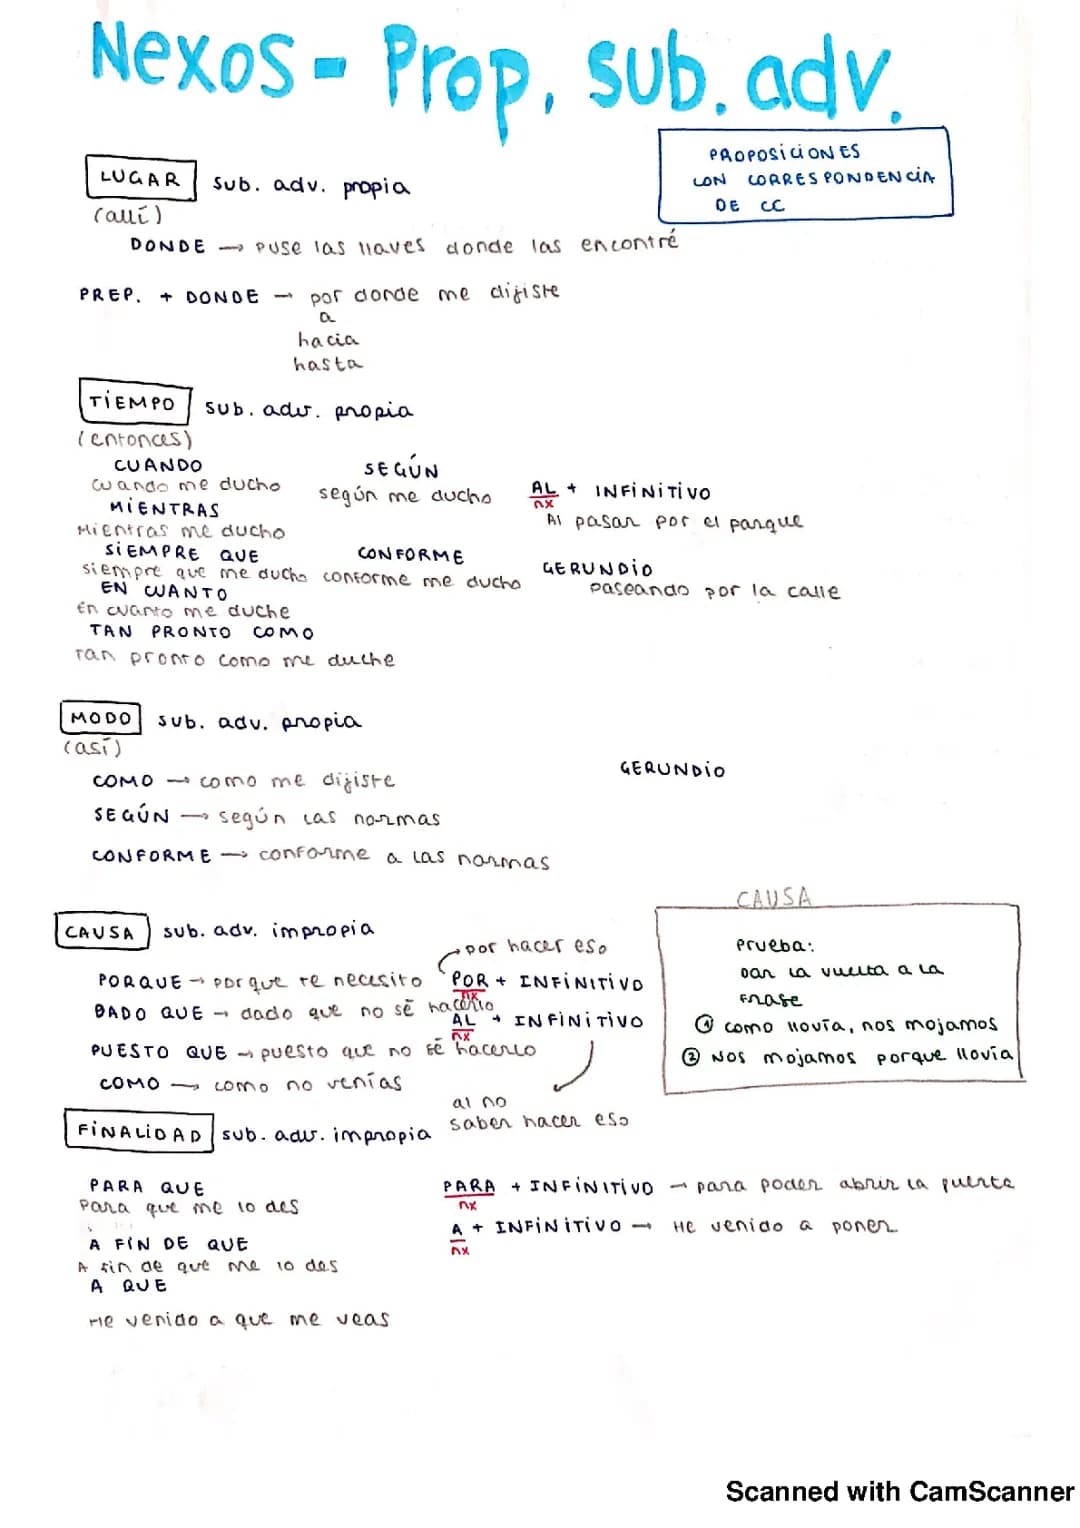 Nexos - Prop. sub. adv.
PROPOSICIONES
CON CORRESPONDENCIA
DE CC
LUGAR sub. adv. propia
(allí)
DONDE → Puse las llaves donde las encontré
PREP. + DONDE → por donde me dijiste
a
hacia
hasta
TIEMPO sub. adv. propia
(entonces)
CUANDO
cuando me ducho
MIENTRAS
Mientras me ducho
SIEMPRE QUE
siempre que me ducho
EN CUANTO
En cuanto me duche
TAN PRONTO COMO
Tan pronto como me duche
SEGÚN
según me ducho
CONFORME
conforme me ducho
AL + INFINITIVO
nx
Al pasar por el parque
GERUNDIO
paseando por la calle
MODO sub. adv. propia
(así)
COMO → como me dijiste
SEGÚN → según las normas
CONFORME → conforme a las normas
GERUNDIO
CAUSA sub. adv. impropia
PORQUE → porque te necesito
DADO QUE → dado que no sé hacerlo
PUESTO QUE → puesto que no sé hacerlo
COMO → como no venías
por hacer eso
POR + INFINITIVO
nx
AL + INFINITIVO
nx
al no
saber hacer eso
CAUSA
Prueba:
Dar la vuelta a la
frase
① como llovía, nos mojamos
② Nos mojamos porque llovía
FINALIDAD sub. adv. impropia
PARA QUE
Para que me lo des
A FIN DE QUE
A fin de que me lo des
A QUE
He venido a que me veas
PARA + INFINITIVO → para poder abrir la puerta
nx
A + INFINITIVO → He venido a poner
nx
Scanned with CamScanner